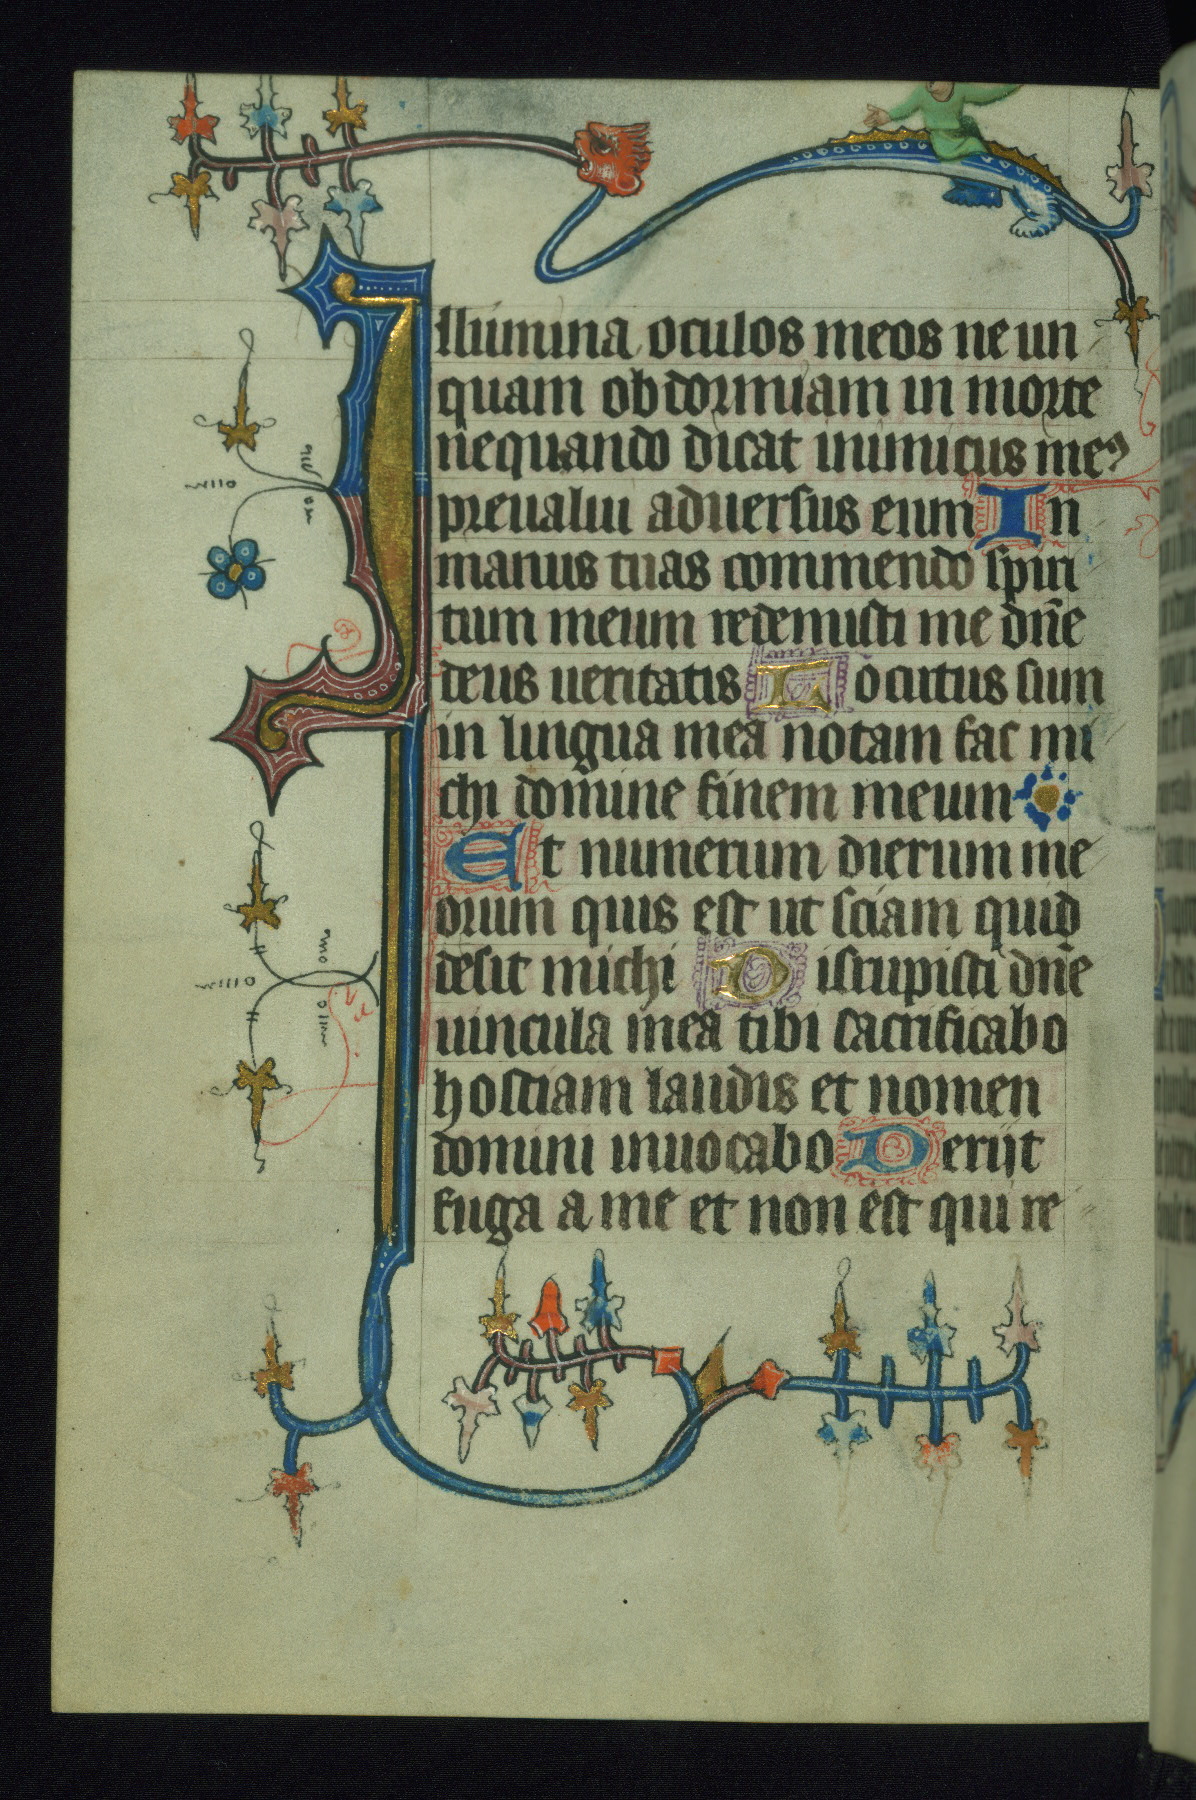 Illumina oculos meos ne un
quam obdormiam in morte
nequando dicat inimicus meꝰ
preualui aduersus eum In
manus tuas commendo spiri
tum meum redemisti me dn̄e
deus ueritatis Locutus sum
in lingua mea notam fac mi
chi domine finem meum
Et numerum dierum me
orum quis est ut sciam quid
desit michi Disrupisti dn̄e
uincula mea tibi sacrificabo
hostiam laudis et nomen
domini inuocabo Periit
fuga a me et non est qui re